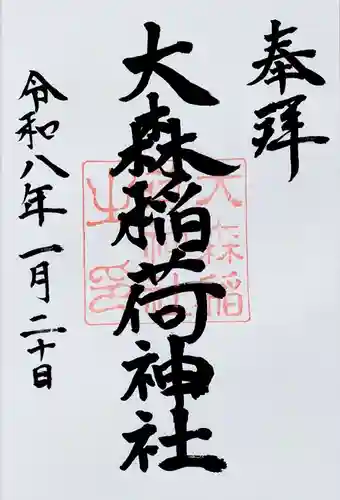 奉拜
大森稲荷神社
令和八年一月二十日
大森稲
荷神社
之印